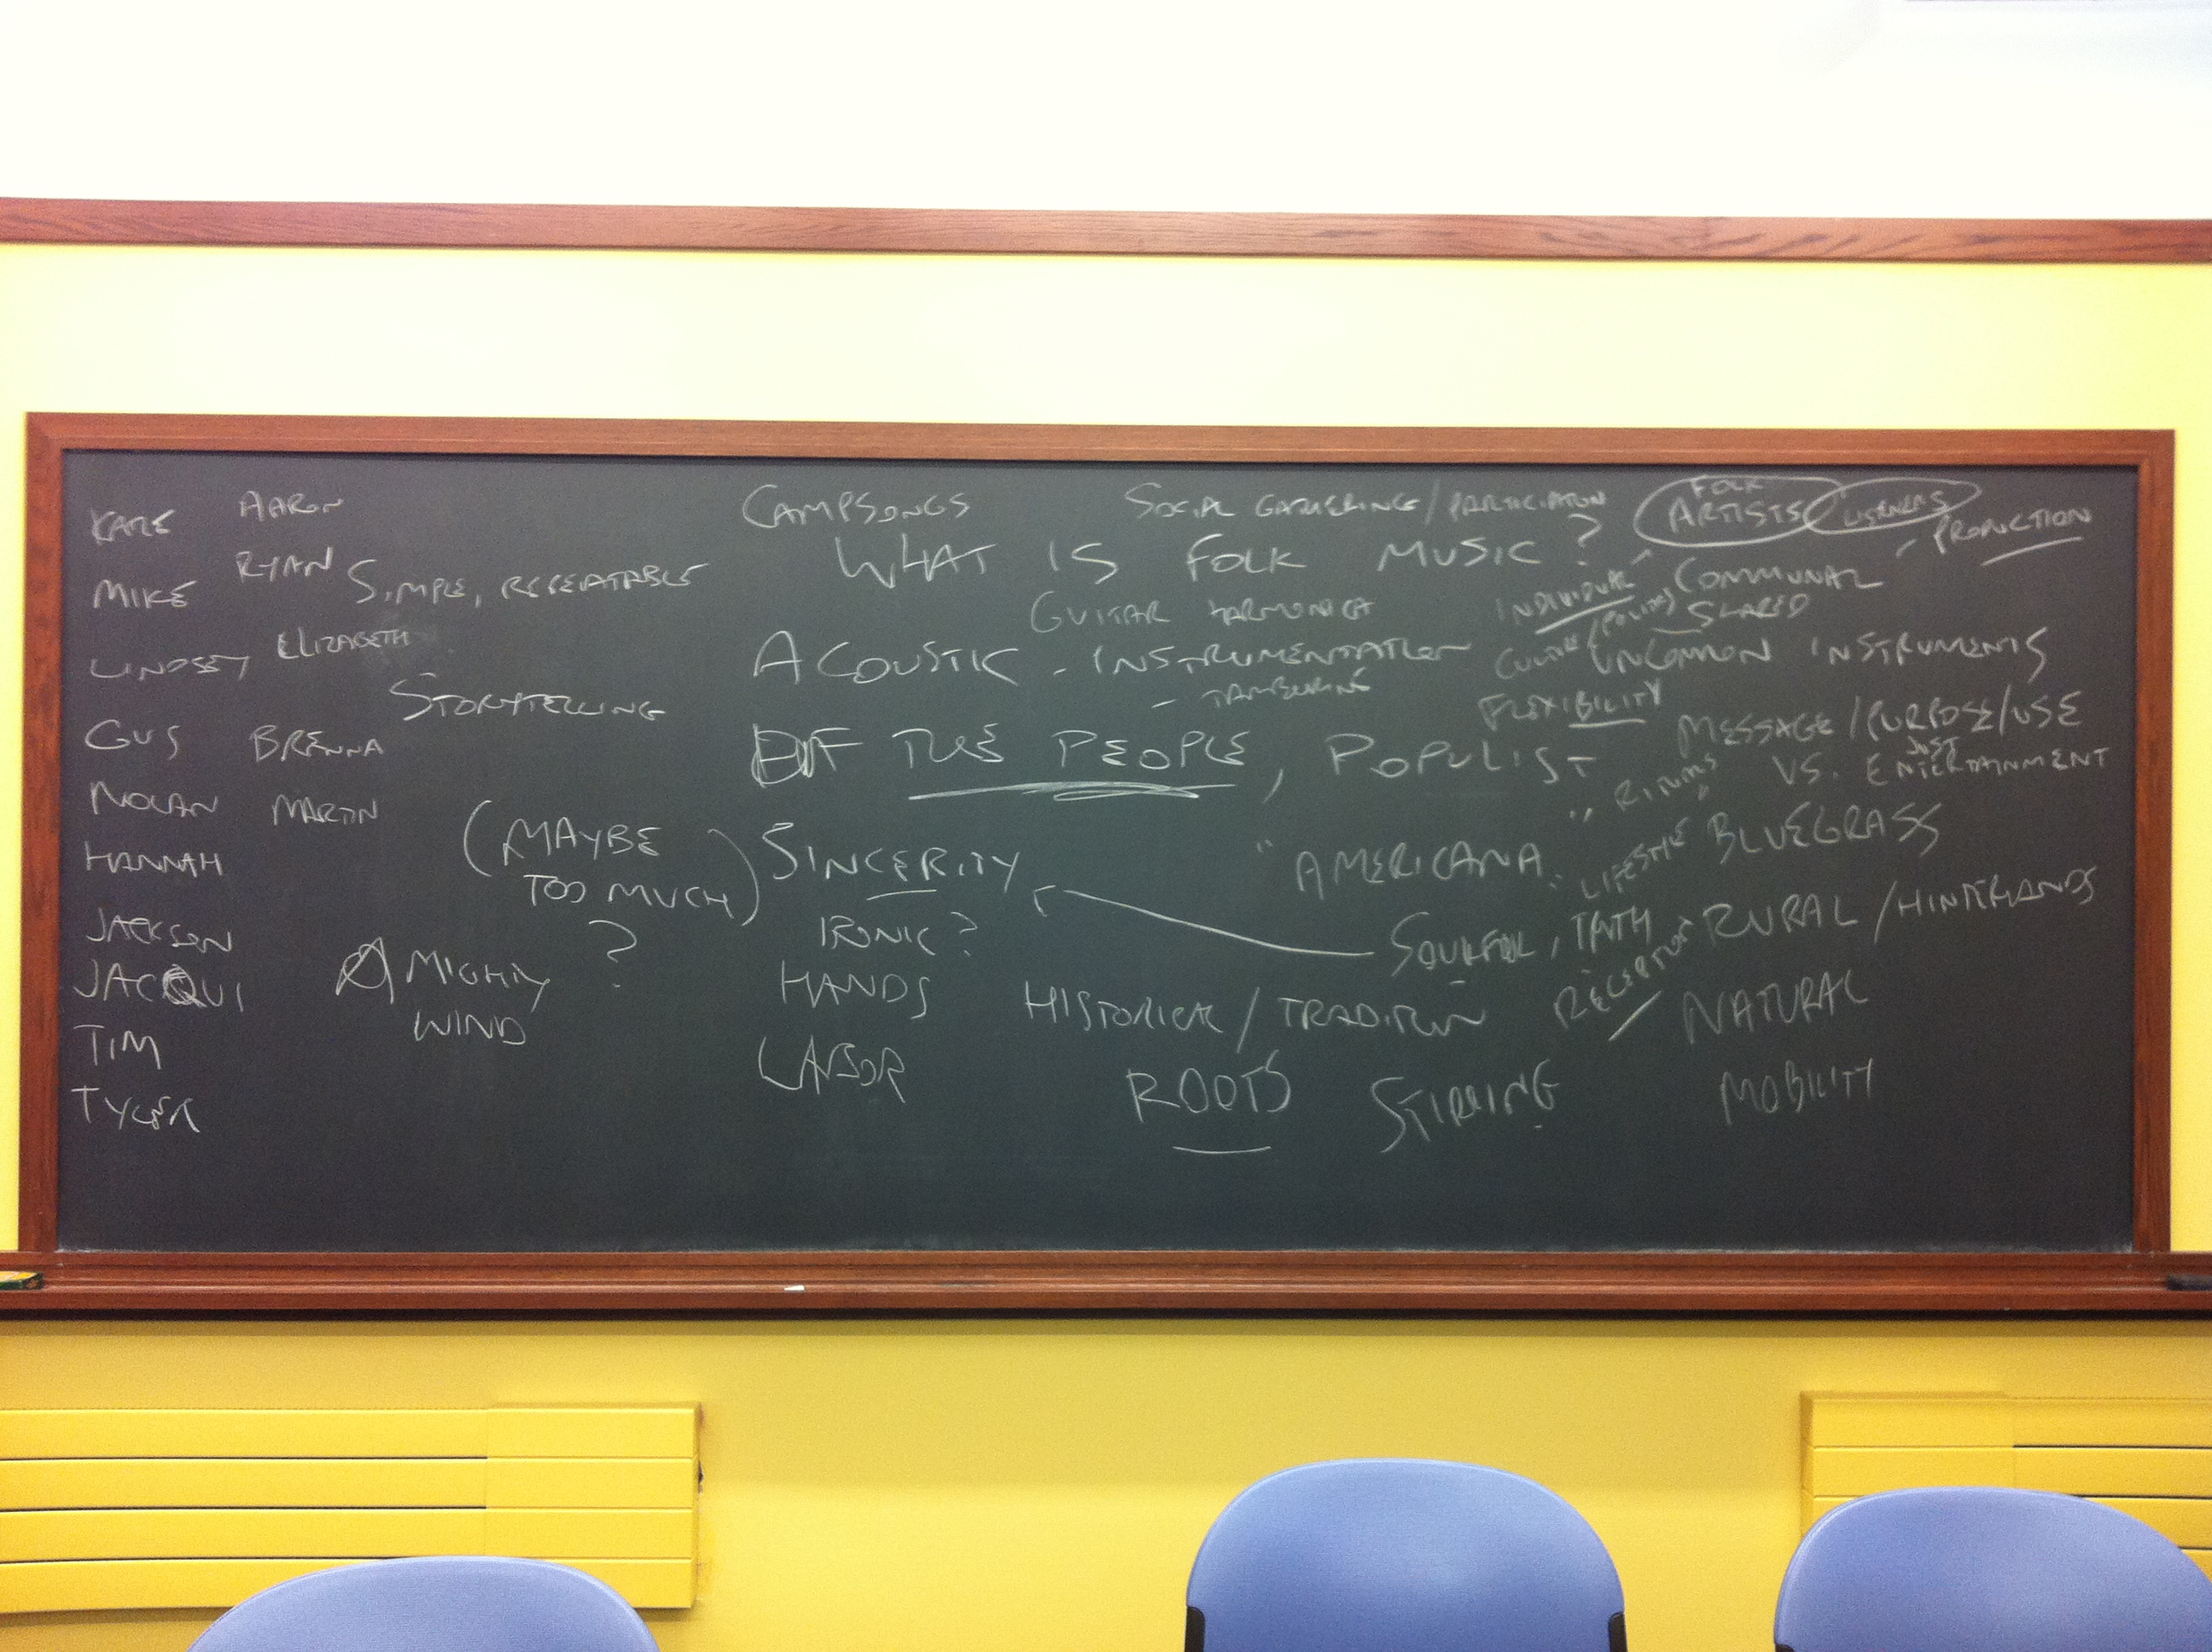 KATE
MIKE
LINDSEY
GUS
NOLAN
HANNAH
JACKSON
JACQUI
TIM
TYLER
AARON
RYAN
ELIZABETH
BRENNA
MARTIN
SIMPLE, REPEATABLE
STORYTELLING
(MAYBE
TOO MUCH)
?
A MIGHTY
WIND
CAMPSONGS
SOCIAL GATHERING/PARTICIPATION
WHAT IS FOLK MUSIC?
GUITAR HARMONICA
ACOUSTIC - INSTRUMENTATION
- TAMBURINE
OF THE PEOPLE, POPULIST
SINCERITY
IRONIC?
HANDS
LABOR
"AMERICANA"
SOULFUL, TRUTH
HISTORICAL/TRADITION
ROOTS
STIRRING
FOLK
ARTISTS
LISTENERS
- PRODUCTION
INDIVIDUAL -
COMMUNAL
SHARED
CULTURE/(POLITICS)
UNCOMMON INSTRUMENTS
FLEXIBILITY
MESSAGE/PURPOSE/USE
VS. JUST ENTERTAINMENT
LIFESTYLE
BLUEGRASS
RURAL/HINTERLANDS
RECEPTION
NATURAL
MOBILITY